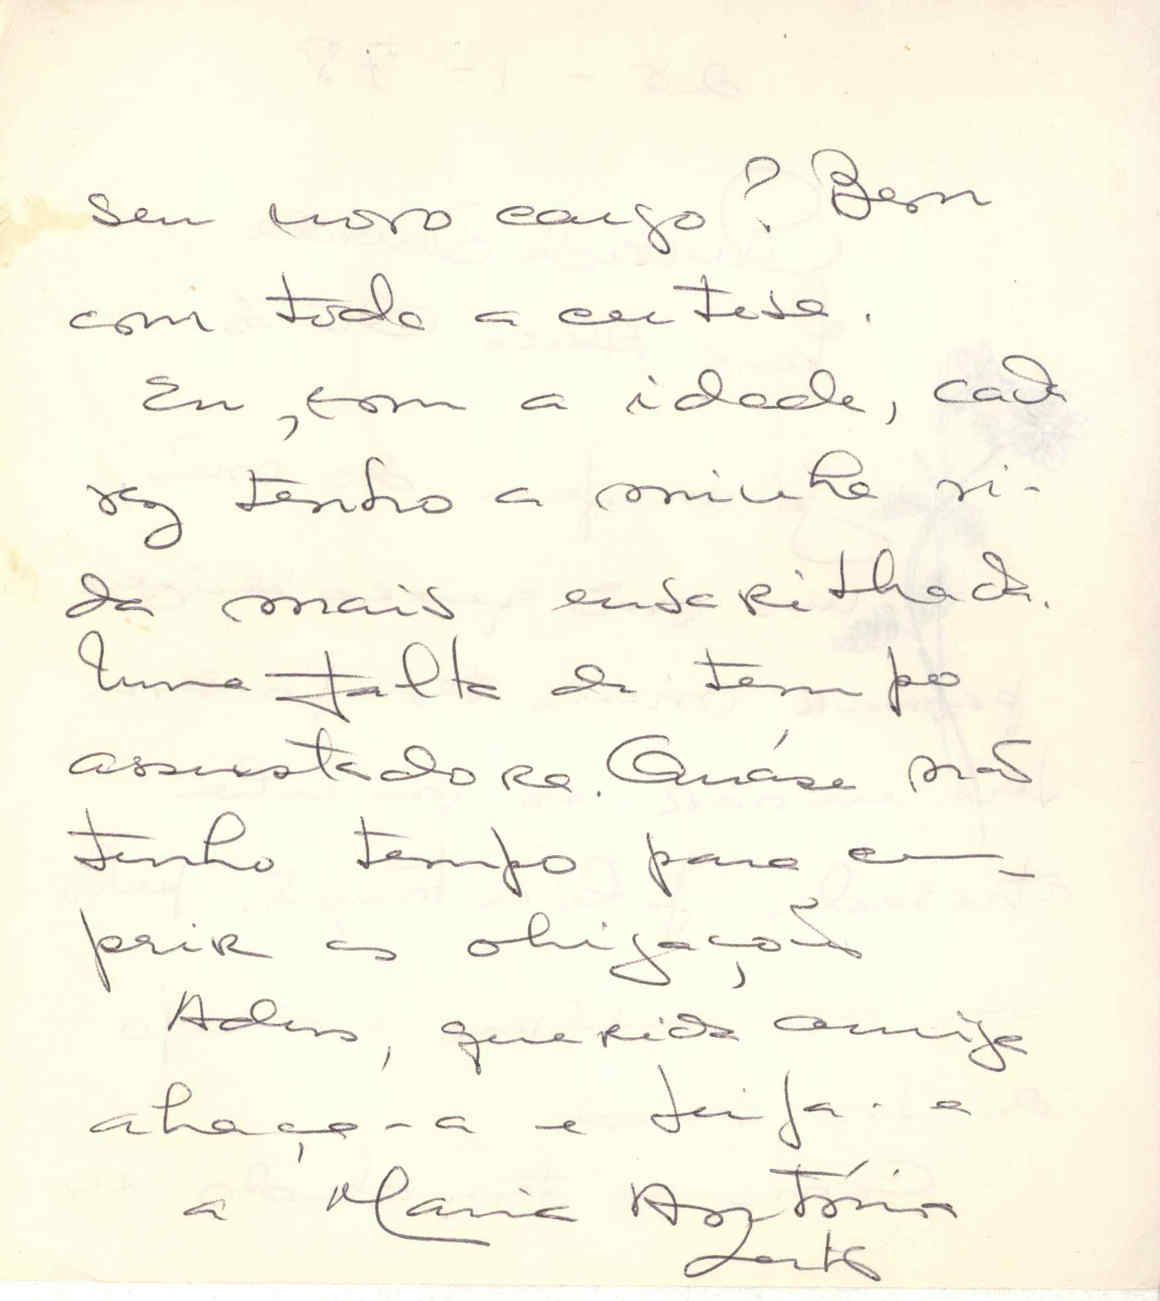 seu novo cargo? Bem
com toda a certesa.
Eu, com a idade, cada
vez tenho a minha vi-
da mais ensarilhada.
Uma falta de tempo
assustadora. Quáse não
tenho tempo para cum-
prir as obrigações
Adeus, querida amiga
abraça-a e beija-a
a Maria Antónia